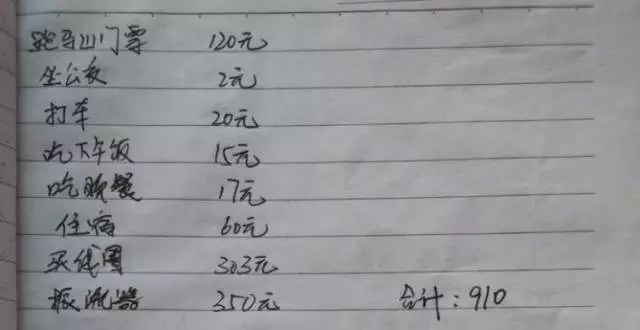 跑马山门票 120元
坐公交 2元
打车 20元
吃下午饭 15元
吃晚餐 17元
住宿 60元
买线圈 303元
振流器 350元 合计：910